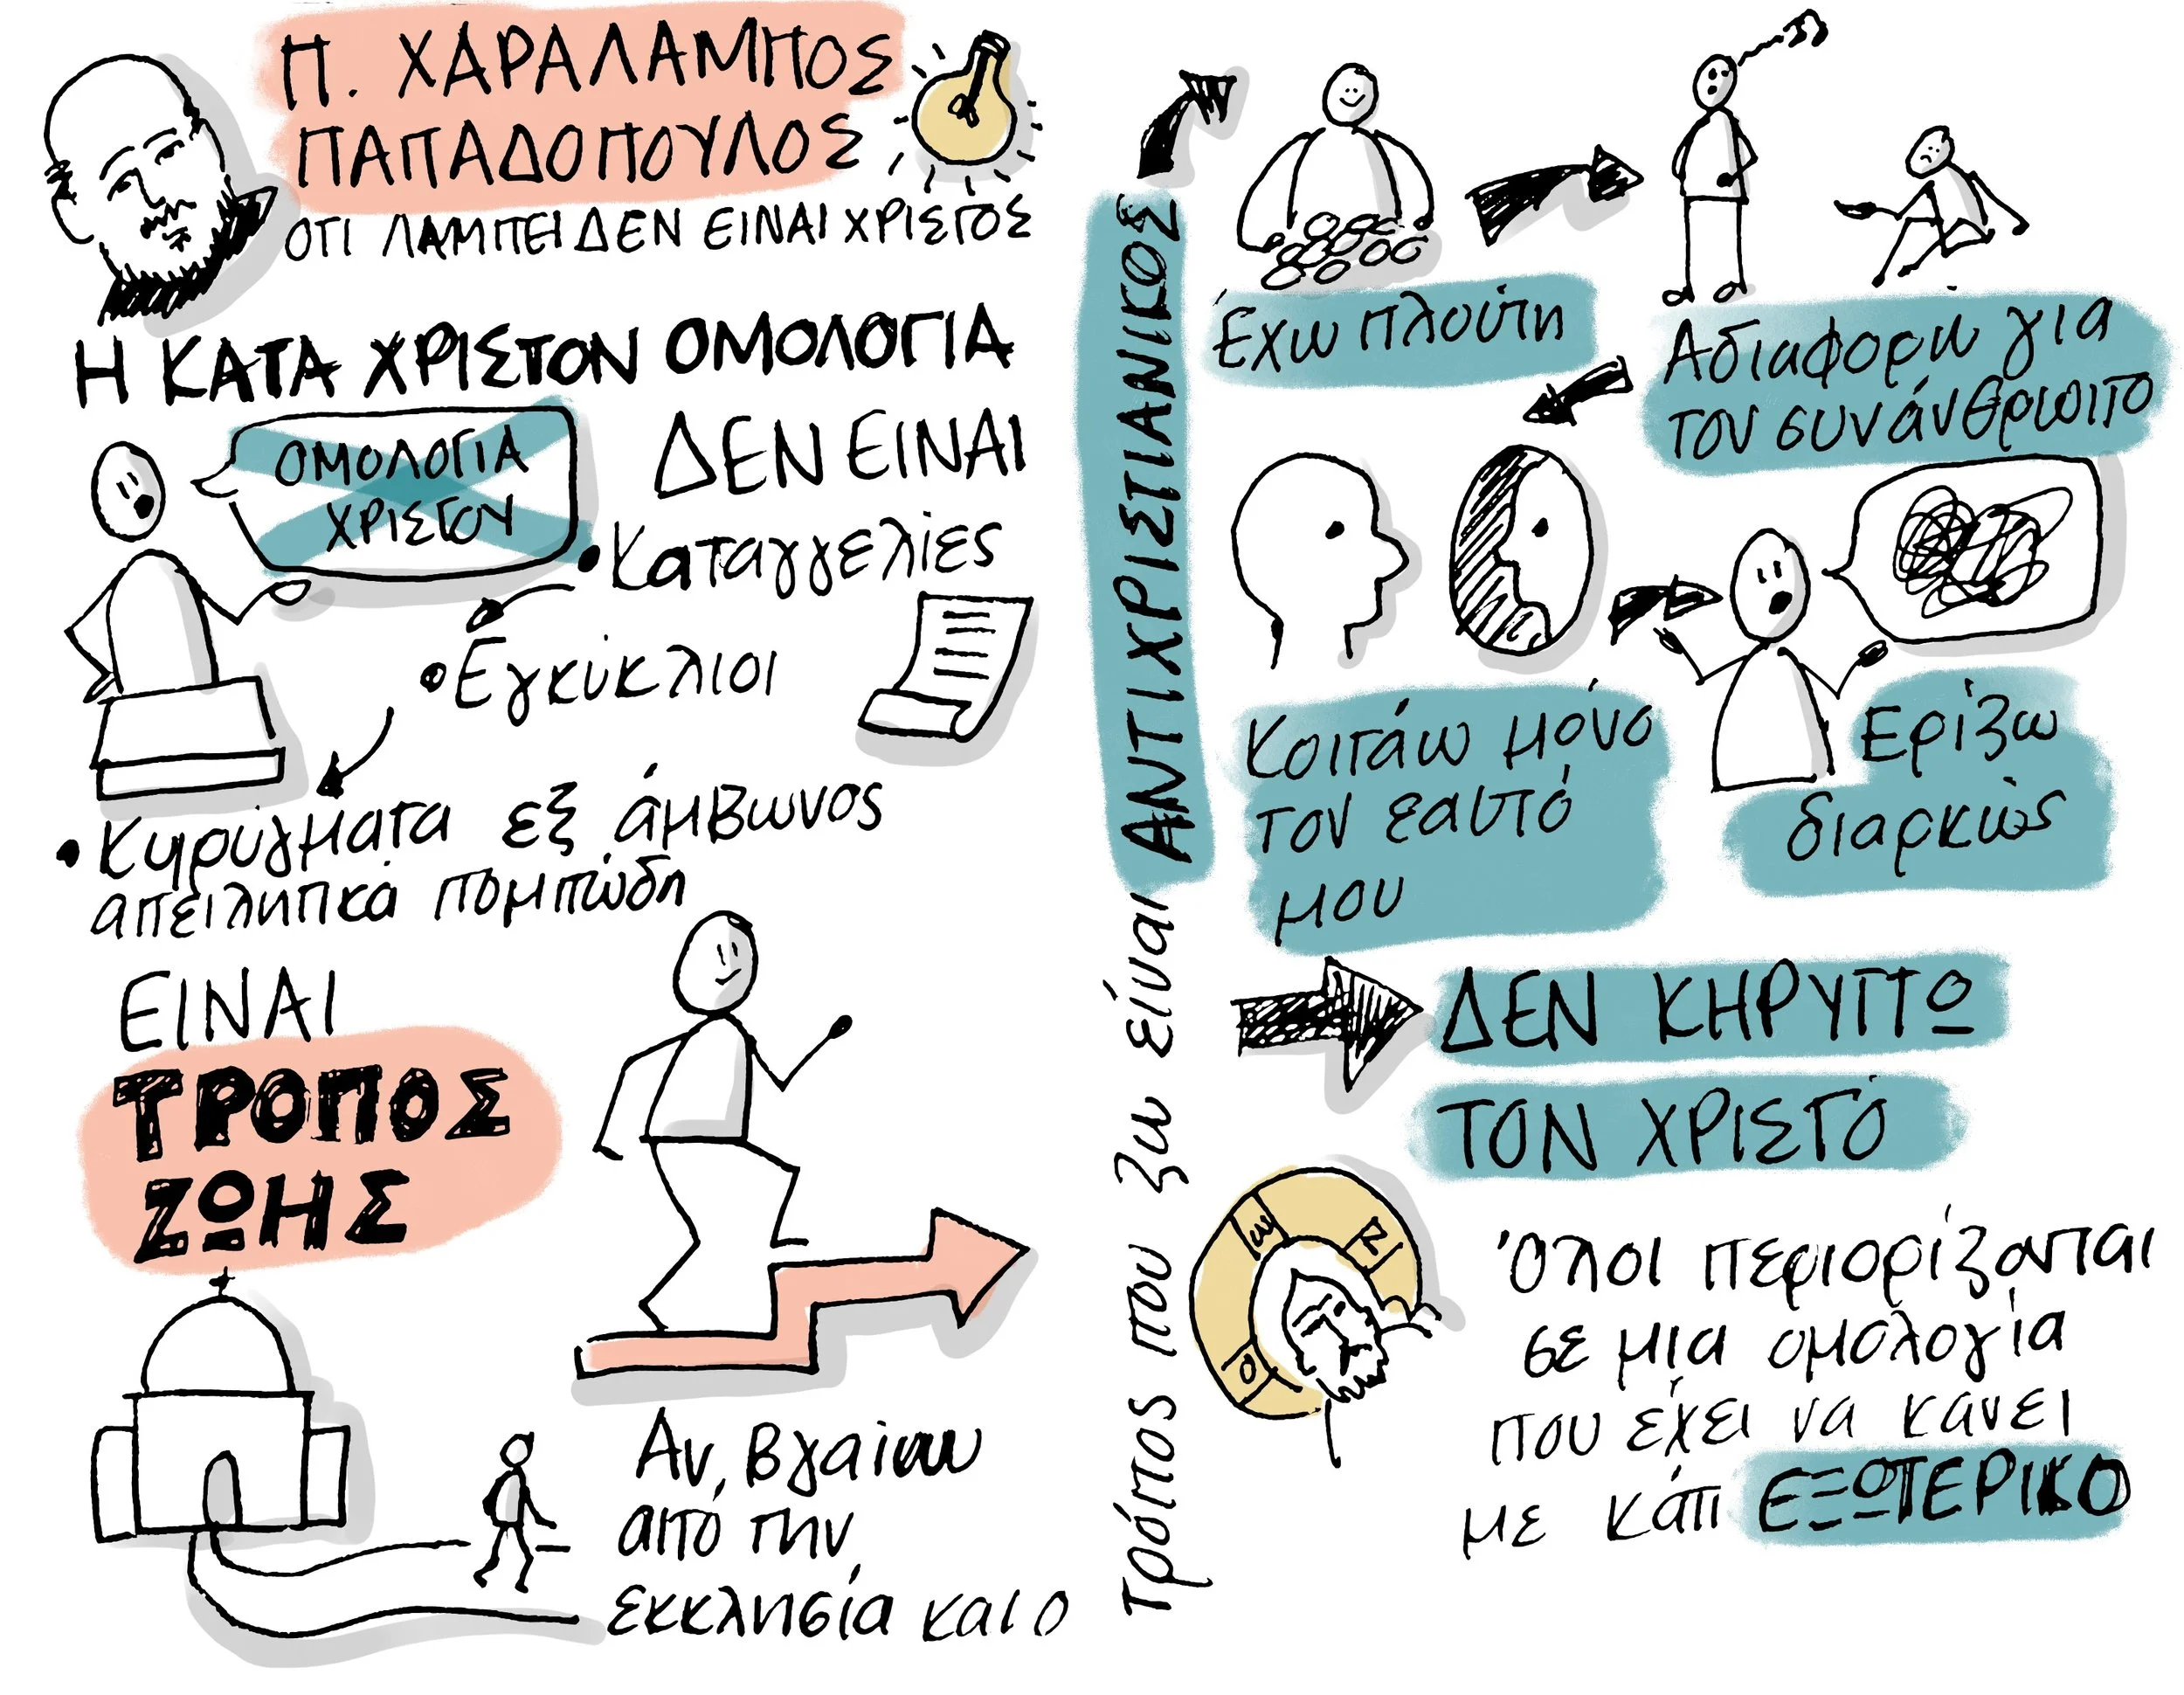 Π. ΧΑΡΑΛΑΜΠΟΣ
ΠΑΠΑΔΟΠΟΥΛΟΣ
ΟΤΙ ΛΑΜΠΕΙ ΔΕΝ ΕΙΝΑΙ ΧΡΙΣΤΟΣ
Η ΚΑΤΑ ΧΡΙΣΤΟΝ ΟΜΟΛΟΓΙΑ
ΟΜΟΛΟΓΙΑ
ΧΡΙΣΤΟΥ
ΔΕΝ ΕΙΝΑΙ
• Καταγγελίες
• Εγκύκλιοι
• Κηρύγματα εξ άμβωνος
απειλητικά πομπώδη
ΕΙΝΑΙ
ΤΡΟΠΟΣ
ΖΩΗΣ
Αν βγαίνω
από την
εκκλησία και ο
Τρόπος που ζω είναι ΑΝΤΙΧΡΙΣΤΙΑΝΙΚΟΣ
Έχω πλούτη
Αδιαφορώ για
τον συνάνθρωπο
Κοιτάω μόνο
τον εαυτό
μου
Ερίζω
διαρκώς
ΔΕΝ ΚΗΡΥΤΤΩ
ΤΟΝ ΧΡΙΣΤΟ
Ο
ω
Ν
Όλοι περιορίζονται
σε μια ομολογία
που έχει να κάνει
με κάτι ΕΞΩΤΕΡΙΚΟ